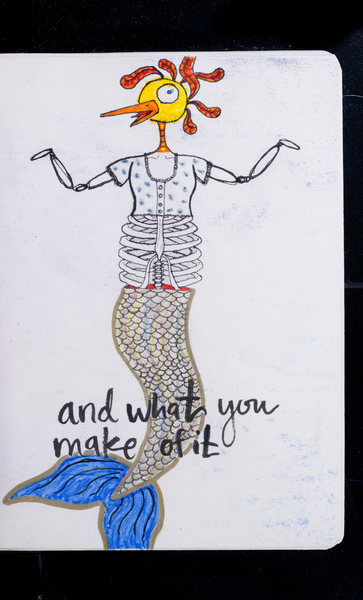 and what you
make of it